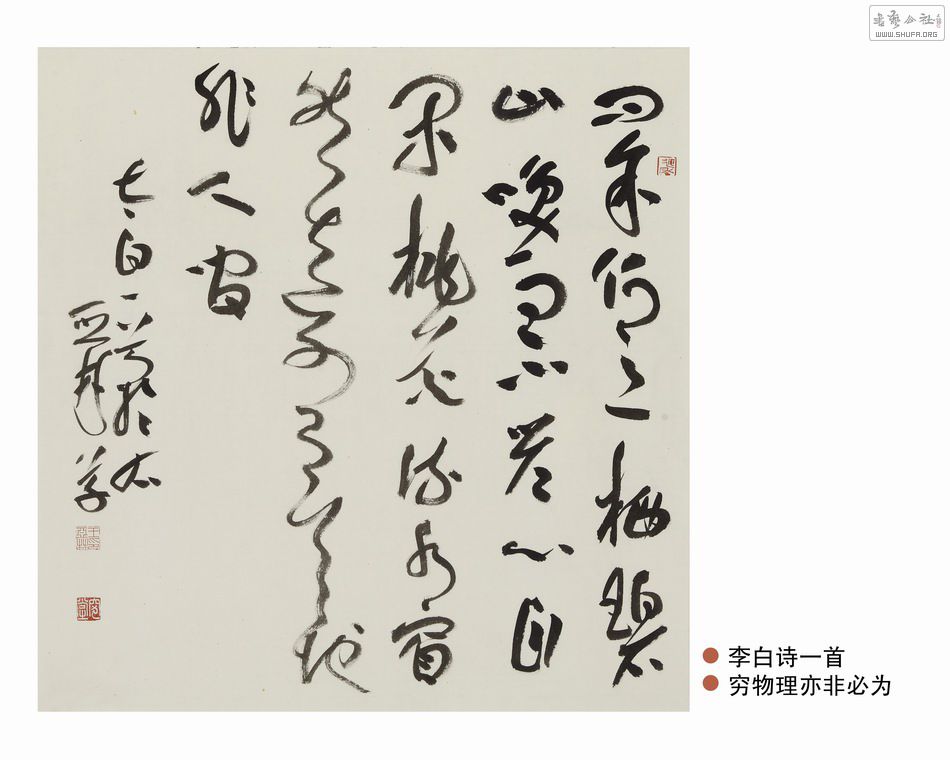 书艺公社
WWW.SHUFA.ORG
问余何栖碧
山笑而不答心自
闲桃花流水窅
然去别有天地
非人间
太白
草
李白诗一首
穷物理亦非必为